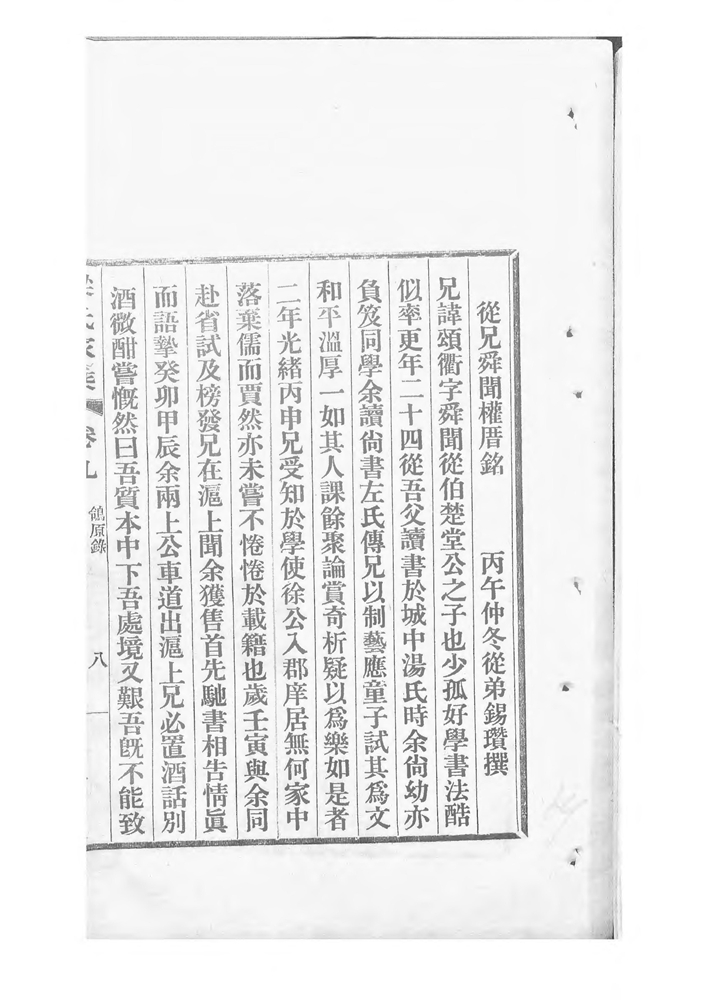 從兄舜聞權厝銘　丙午仲冬從弟錫瓚撰
兄諱頌衢字舜聞從伯楚堂公之子也少孤好學書法酷
似率更年二十四從吾父讀書於城中湯氏時余尙幼亦
負笈同學余讀尙書左氏傳兄以制藝應童子試其爲文
和平溫厚一如其人課餘聚論賞奇析疑以爲樂如是者
二年光緒丙申兄受知於學使徐公入郡庠居無何家中
落棄儒而賈然亦未嘗不惓惓於載籍也歲壬寅與余同
赴省試及榜發兄在滬上聞余獲售首先馳書相告情眞
而語摯癸卯甲辰余兩上公車道出滬上兄必置酒話別
酒微酣嘗慨然曰吾質本中下吾處境又艱吾旣不能致
氏家集　卷九　鴒原錄　八